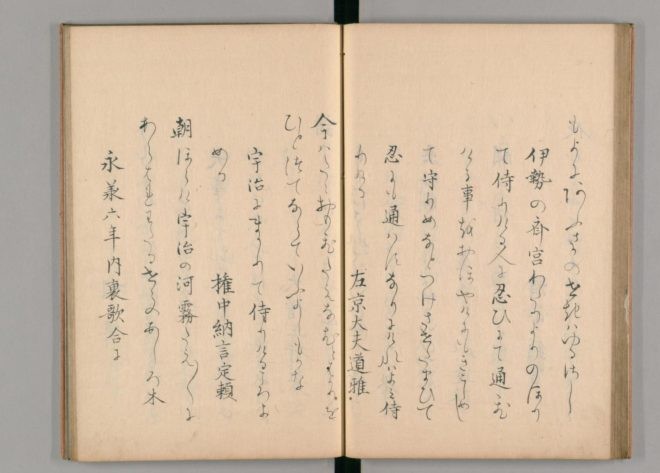 もよにあふさかのせきはゆるさし
伊勢の斎宮わたりよりのほり
て侍りける人に忍ひて通ひ
ける事をおほやけもきこしめし
て守りめなとつけさせたまひて
忍にも通はすなりにけれはよみ侍
りける　左京大夫道雅
今はたゝおもひたえなむとはかりを
ひとつてならていふよしもかな
宇治にまかりて侍りけるころよ
める　権中納言定頼
朝ほらけ宇治の河霧たえ〱に
あらはれわたるせゝのあしろ木
永承六年内裏歌合に